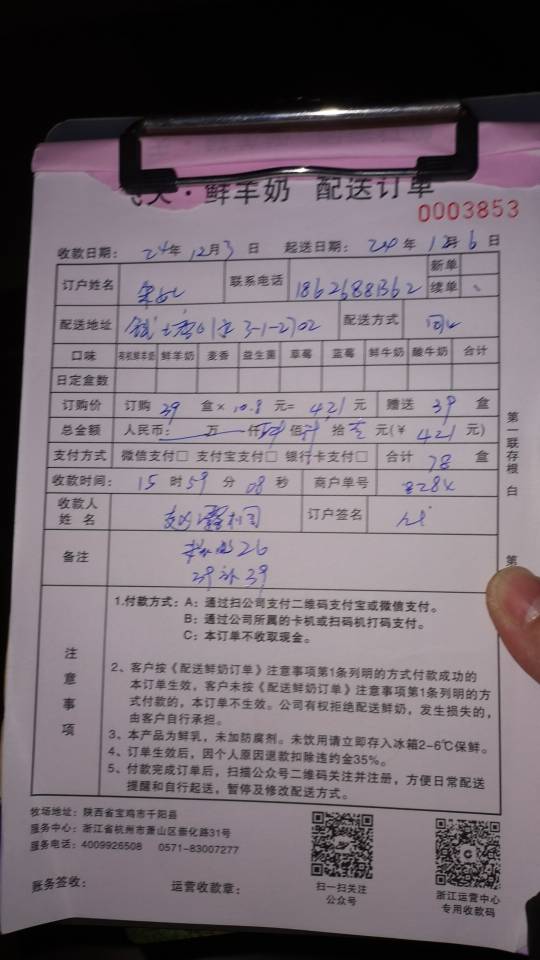 ·鲜羊奶 配送订单
0003853
收款日期: 24年12月3日 起送日期: 24年12月6日
订户姓名 联系电话 新单
续单
配送地址 3-1-2702 配送方式
口味 有机鲜羊奶 鲜羊奶 麦香 益生菌 草莓 蓝莓 鲜牛奶 酸牛奶 合计
日定盒数
订购价 订购 39 盒× 10.8 元= 421 元 赠送 39 盒
总金额 人民币: 万 仟 肆 佰 拾 壹 元(¥ 421 元)
支付方式 微信支付□ 支付宝支付□ 银行卡支付□ 合计 78 盒
收款时间: 15 时 59 分 08 秒 商户单号 828X
收款人
姓 名 订户签名
备注 26
39补39
第一联存根 白
第
注意事项
1.付款方式: A: 通过扫公司支付二维码支付宝或微信支付。
B: 通过公司所属的卡机或扫码机打码支付。
C: 本订单不收取现金。
2、客户按《配送鲜奶订单》注意事项第1条列明的方式付款成功的
本订单生效，客户未按《配送鲜奶订单》注意事项第1条列明的方
式付款的，本订单不生效。公司有权拒绝配送鲜奶，发生损失的，
由客户自行承担。
3、本产品为鲜乳，未加防腐剂。未饮用请立即存入冰箱2-6℃保鲜。
4、订单生效后，因个人原因退款扣除违约金35%。
5、付款完成订单后，扫描公众号二维码关注并注册，方便日常配送
提醒和自行起送，暂停及修改配送方式。
牧场地址: 陕西省宝鸡市千阳县
服务中心: 浙江省杭州市萧山区崇化路31号
服务电话: 4009926508 0571-83007277
账务签收: 运营收款章:
扫一扫关注
公众号
浙江运营中心
专用收款码